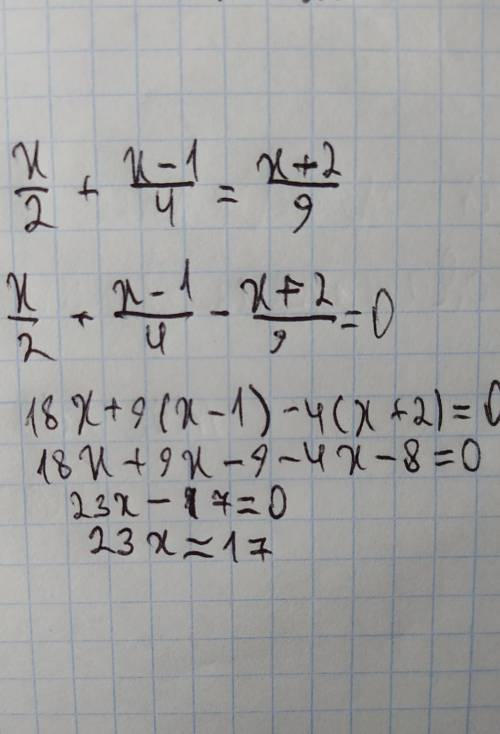 x/2 + x-1/4 = x+2/9
x/2 + x-1/4 - x+2/9 = 0
18x+9(x-1)-4(x+2)=0
18x+9x-9-4x-8=0
23x-17=0
23x=17